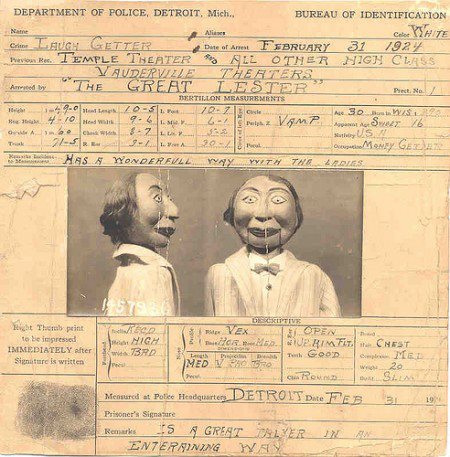 DEPARTMENT OF POLICE, DETROIT, Mich., BUREAU OF IDENTIFICATION
Name Aliases Color WHITE
Crime LAUGH GETTER Date of Arrest FEBRUARY 31 1924
Previous Rec. TEMPLE THEATER AND ALL OTHER HIGH CLASS
VAUDERVILLE THEATERS
Arrested by "THE GREAT LESTER" Prect. No. 1
BERTILLON MEASUREMENTS
Height Head Length 10-5 L. Foot 10-7 Circle Age 30 Born in WIS
Eng. Height 4-10 Head Width 9-6 L. Mid. F. 6-1 Periph. Z VAMP Apparent Age SWEET 16
Outside A. Cheek Width 8-7 L. Lit. F. 5-2 Nativity U.S.A
Trunk 71-5 R. Ear L. Fore A. Pecul. Occupation MONEY GETTER
Remarks Incident to Measurement HAS A WONDERFULL WAY WITH THE LADIES
DESCRIPTIVE
Right Thumb print
to be impressed
IMMEDIATELY after
Signature is written
Inclin. RECD Ridge VEX OPEN Beard
Height HIGH Base HOR Root MED. Hair CHEST
Width BRD Length Projection Breadth Teeth GOOD Complexion MED
Pecul. MED Weight 20
Pecul. Chin ROUND Build SLIM
Measured at Police Headquarters, DETROIT Date FEB 31 19
Prisoner's Signature
Remarks IS A GREAT TALKER IN AN
ENTERAINING WAY